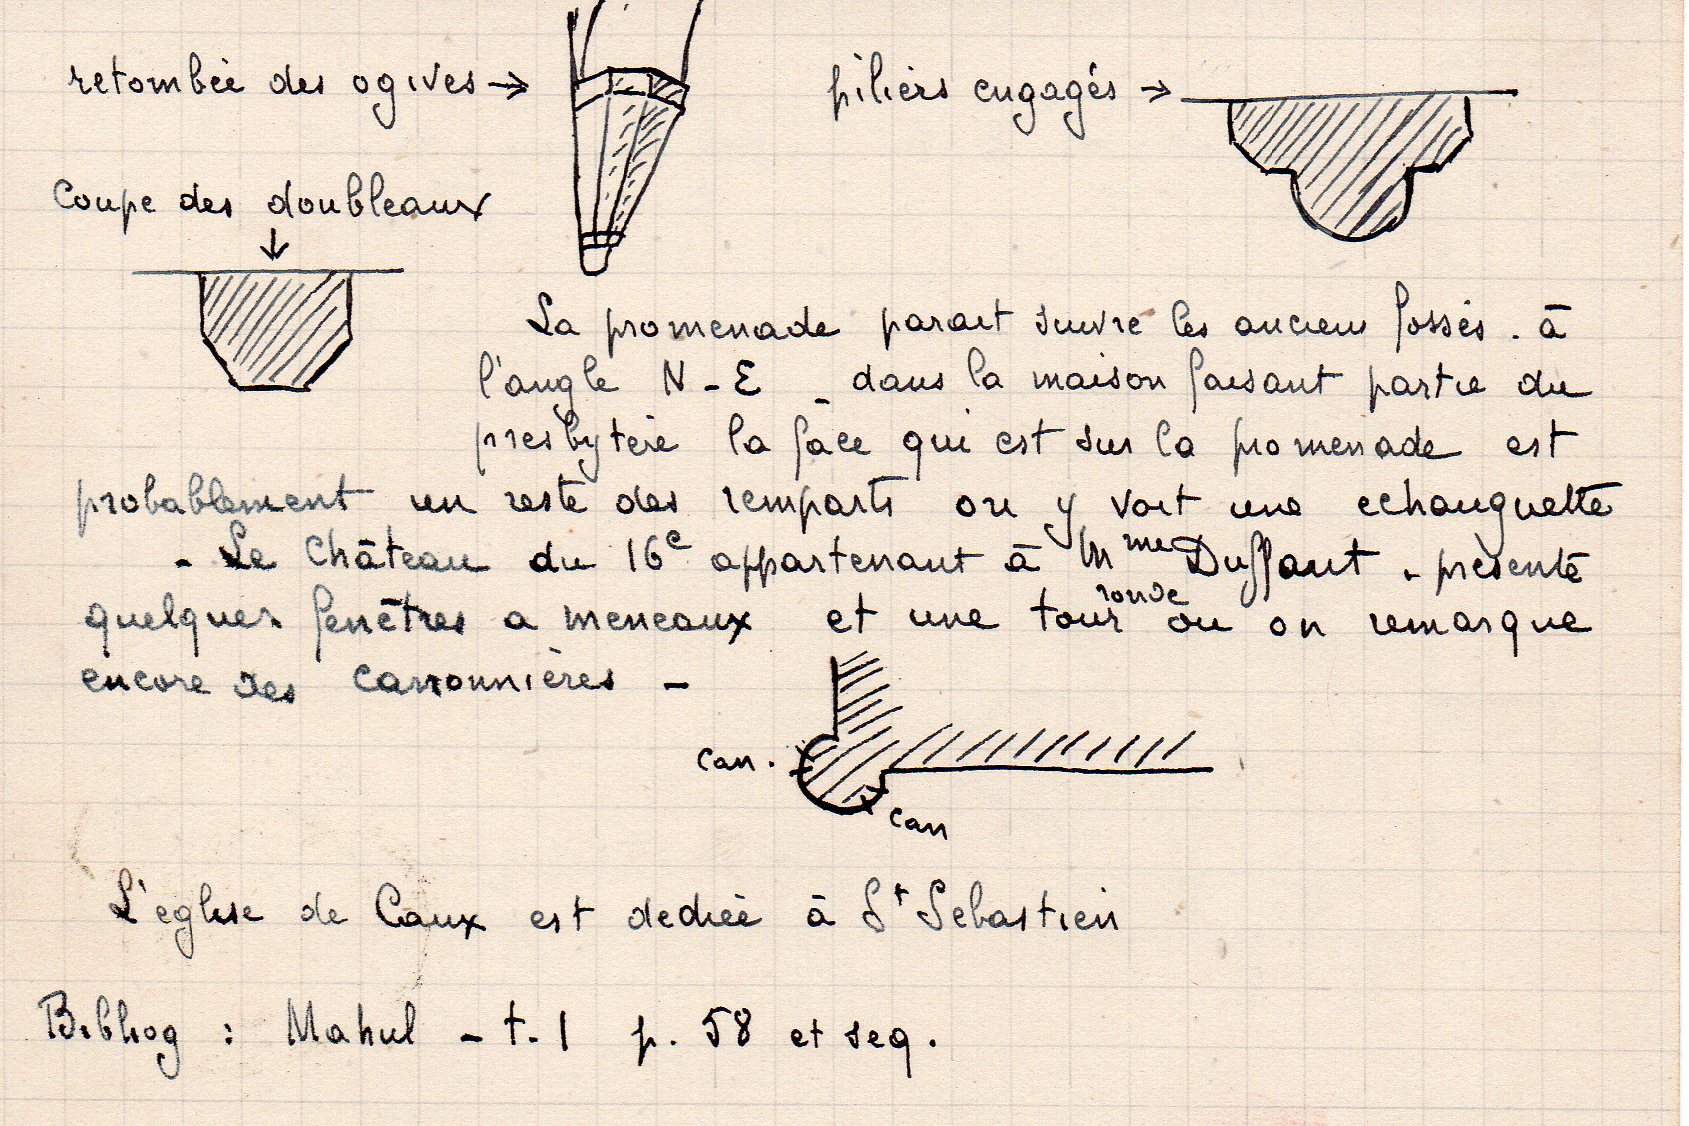 retombée des ogives →
piliers engagés →
Coupe des doubleaux
↓
La promenade parait suivre les anciens fossés. à
l'angle N-E - dans la maison faisant partie du
presbytère la façe qui est sur la promenade est
probablement un reste des remparts on y voit une echauguette
- Le Château du 16e appartenant à Mme Duffaut - présente
quelques fenêtres a meneaux et une tour ronde où on remarque
encore des canonnières -
can.
can
L'eglise de Caux est dediée à St Sebastien
Bibliog : Mahul - t. 1 p. 58 et seq.